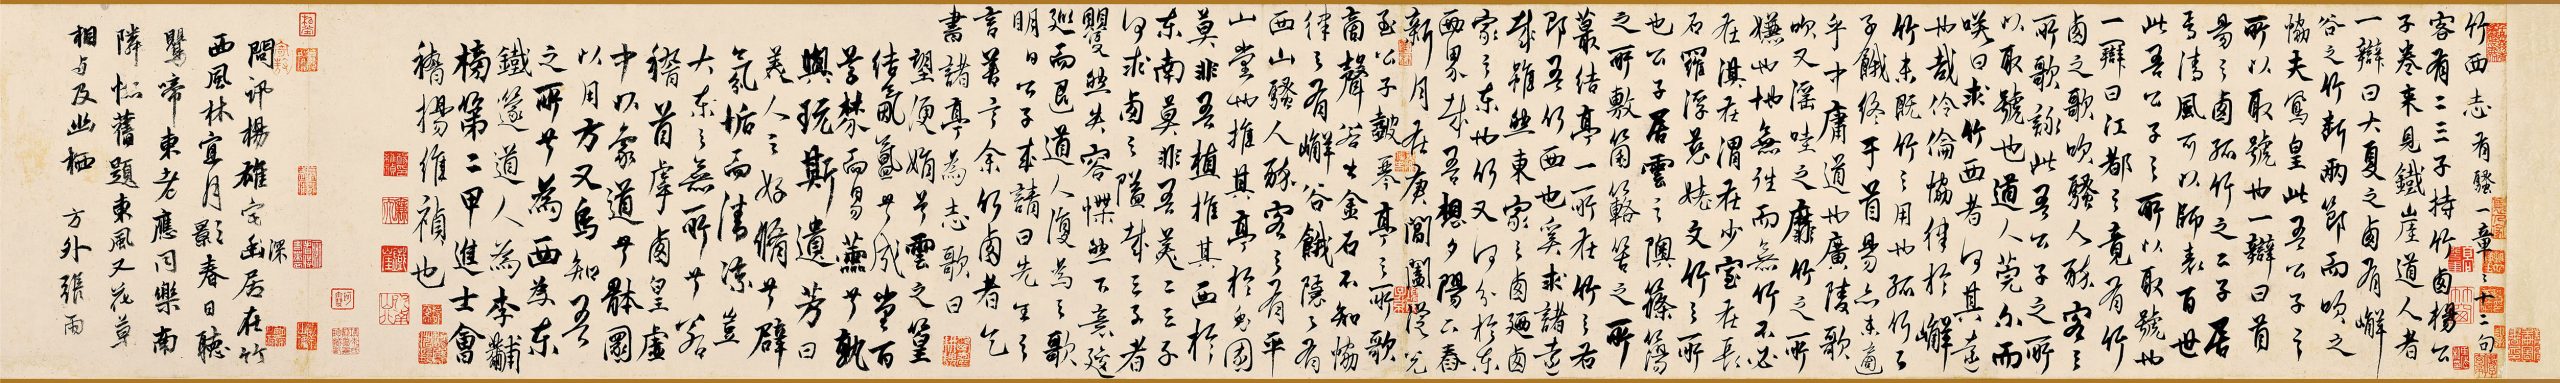 竹西志 有騷一章章十二句
客有二三子持竹西楊公
子卷來見鐵崖道人者
一辯曰大夏之西有嶰
谷之竹斷兩節而吹之
協夫鳳皇此吾公子之
所以取號也一辯曰首
昜之西孤竹之二子居
焉清風可以師表百世
此吾公子之所以取號也
一辯曰江都之竟有竹
西之歌吹騷人醉客之
所歌詠此吾公子之所
以取號也道人莞尓而
咲曰求竹西者何其遠
也哉伶倫協律於嶰
竹未既竹之用也孤竹之
子餓終于首昜亦未適
乎中庸道也廣陵歌
吹又滛哇之靡竹之所
嫌也地無往而無竹不必
在淇在渭在少室在長
石羅浮慈姥文竹之所
也公子居雲之隩篠簜
之所敷箘簵笞之所
叢結亭一所在竹之右
即吾竹西也奚求諸遠
哉雖然東家之西廼西
家之東也竹又何分於東
西界哉吾想夕陽下舂
新月在庚閶闔從兌
至公子鼓琴亭之所歌
商聲若出金石不知協
律之有嶰谷餓隱之有
西山騷人醉客之有平
山堂也推其亭於兔園
莫非吾植推其西於
東南莫非吾美二三子
何求西之隘哉三子者
矍然失容慄然下意逡
巡而退道人復為之歌
明日公子來請曰先生之
言善言余竹西者乞
書諸亭為志歌曰
望便娟兮雲之篁
結氤氳兮成堂百
草棼而易蕪兮孰
與玩斯遺芳曰
美人之好脩兮辟
氛垢而清涼豈
大東之無所兮若
稽首虖西皇虛
中以象道兮體圓
以用方又烏知吾
之所兮為西為東
鐵邃道人為李黼
榜第二甲進士會
稽楊維禎也
問訊楊雄宅幽居在竹
深
西風林宣月影春日聽
鶯啼東老應同樂南
隣惱舊題東風又花草
相与及幽栖 方外張雨